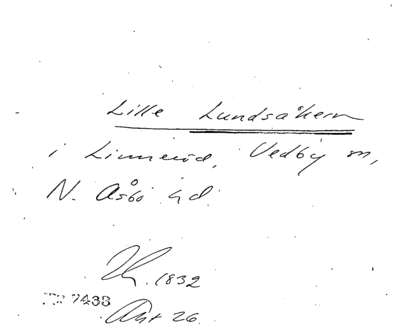 Lille Lundsåkern
i Linneröd, Vedby sn,
N. Åsbo hd.
1832
7433
Akt 26.